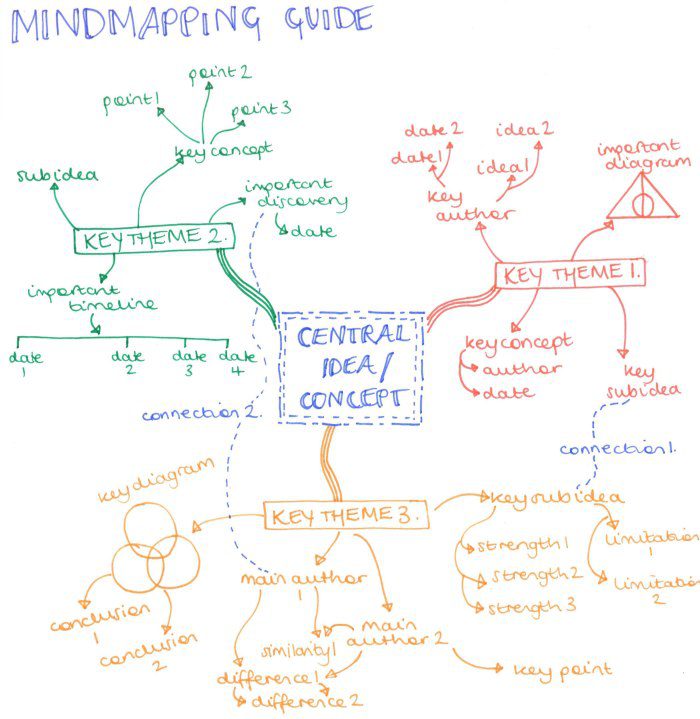 MINDMAPPING GUIDE
point 1
point 2
point 3
key concept
subidea
important
discovery
date
KEY THEME 2.
important
timeline
date
1
date
2
date
3
date
4
date 2
date 1
idea 2
idea 1
key
author
important
diagram
KEY THEME 1.
key concept
author
date
key
subidea
CENTRAL
IDEA/
CONCEPT
connection 2.
connection 1.
key diagram
KEY THEME 3.
key subidea
strength 1
strength 2
strength 3
limitation
1
limitation
2
main author
1
conclusion
1
conclusion
2
similarity 1
main
author 2
difference 1
difference 2
key point